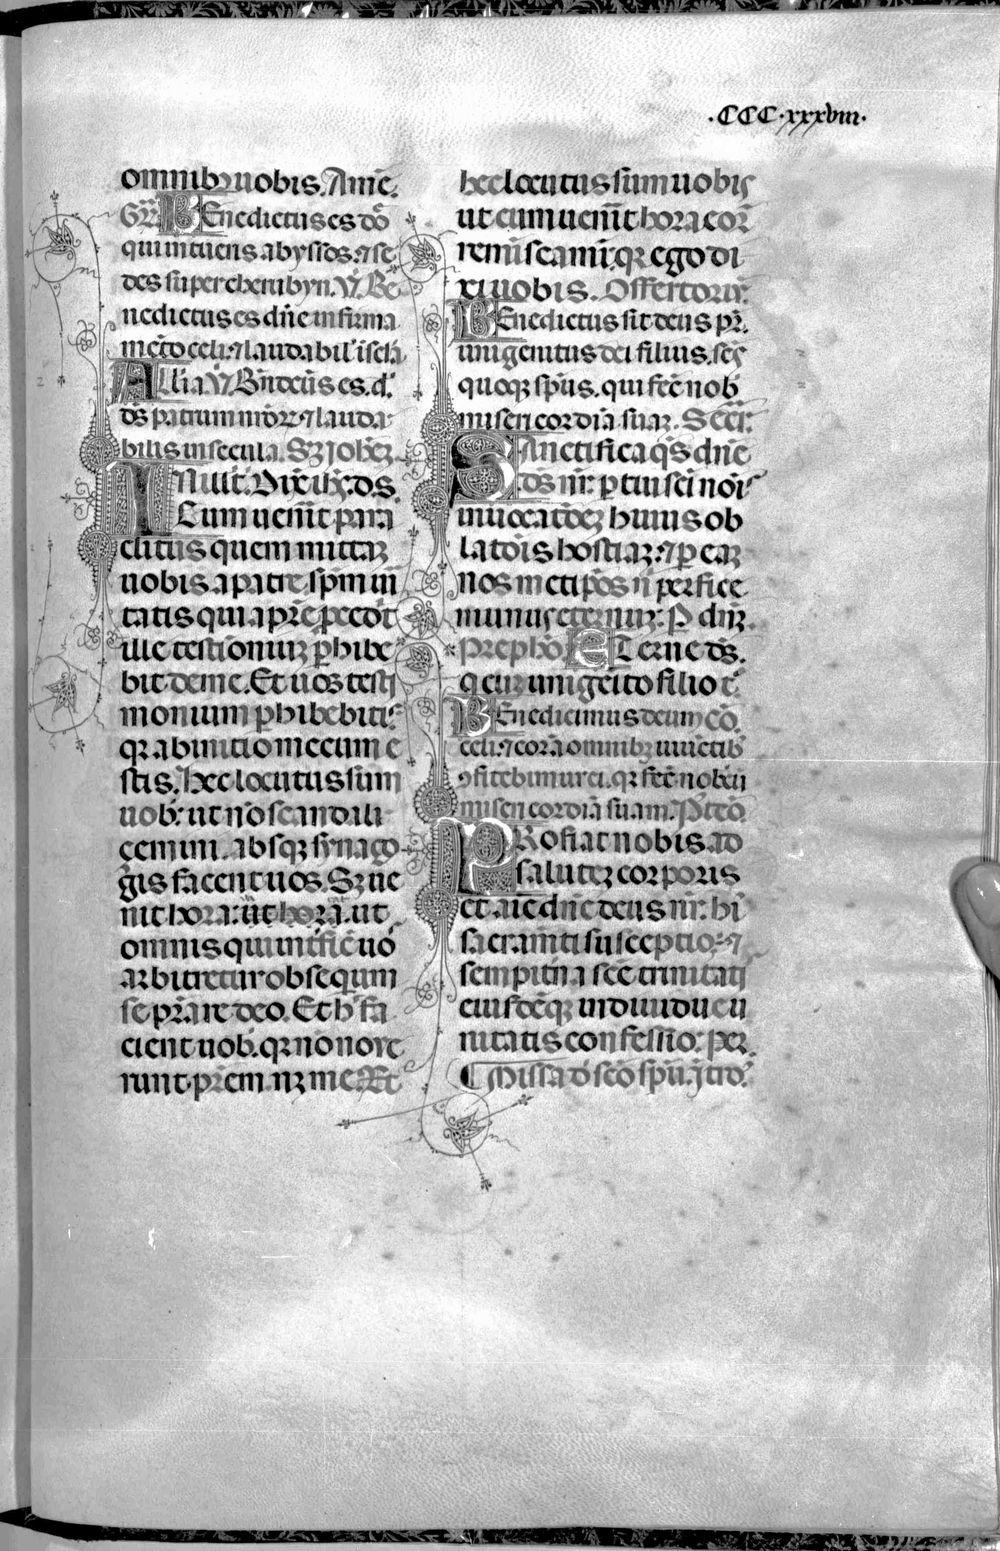 .CCC.xxxviii.
omnibꝫ uobis. Amē.
Gr̄. BEnedictus es dn̄e
qui intueris abyssos. ⁊ se
des super cherubyn. ℣. Be
nedictus es dn̄e in firma
mēto celi. ⁊ laudabil' i sc̄la
Allīa ℣. Bn̄dictus es. d.
ds̄ patrum nr̄orꝫ ⁊ lauda
bilis in secula. Sꝫ iohēꝫ
IN ill. t̄. Dix̄ ih̄c. d. s.
Cum uen̄it para
clitus quem mittaꝫ
uobis a patre. spm̄ ui
tatis qui a pr̄e ꝓcedit
ille testimoniuꝫ ꝑhibe
bit de me. Et uos testi
monium ꝑhibebitis
qꝛ ab initio mecum e
stis. Hec locutus sum
uob. ut nō scandali
cemini. absqꝫ synago
gis facent uos. Sꝫ ue
nit hora. ut
omnis qui int̄fic̄ uō
arbitretur obsequium
se pr̄are deo. Et h' fa
cient uob. qꝛ nō noue
runt pr̄em. nꝫ me. Et
hec locutus sum uobis
ut cum uen̄it hora eor̄
reminiscamī. qꝛ ego di
xi uobis. Offertoriū.
BEnedictus sit deus pr̄.
unigenitus dei filius. scs̄
quoqꝫ spūs. qui fec̄ nob
misericordiā suaꝫ. Secr̄.
SAnctifica qs̄ dn̄e
ds̄ nr̄. ꝑ tui sc̄i nōis
inuocatōeꝫ huius ob
latōis hostiaꝫ. ⁊ ꝑ eaꝫ
nos metipōs t̄ perfice
munus eternuꝫ. P̱ dn̄ꝫ.
Prephō. ETerne ds̄.
q cuꝫ unigēito filio t.
BEnedicimus deum cō.
celi. ⁊ corā omnibꝫ uiuētib
ꝯfitebimur ei. qꝛ fec̄ nobcū
misericordiā suam. P̄ cō.
PRofiat nobis ad
saluteꝫ corporis
et aīe dn̄e deus nr̄. hi
sacram̄ti susceptio. ⁊
sempit̄na sc̄e trinitatis
eiusdēqꝫ indiuidue u
nitatis confessio. per.
¶ Missa d' sc̄o spū. ītro.